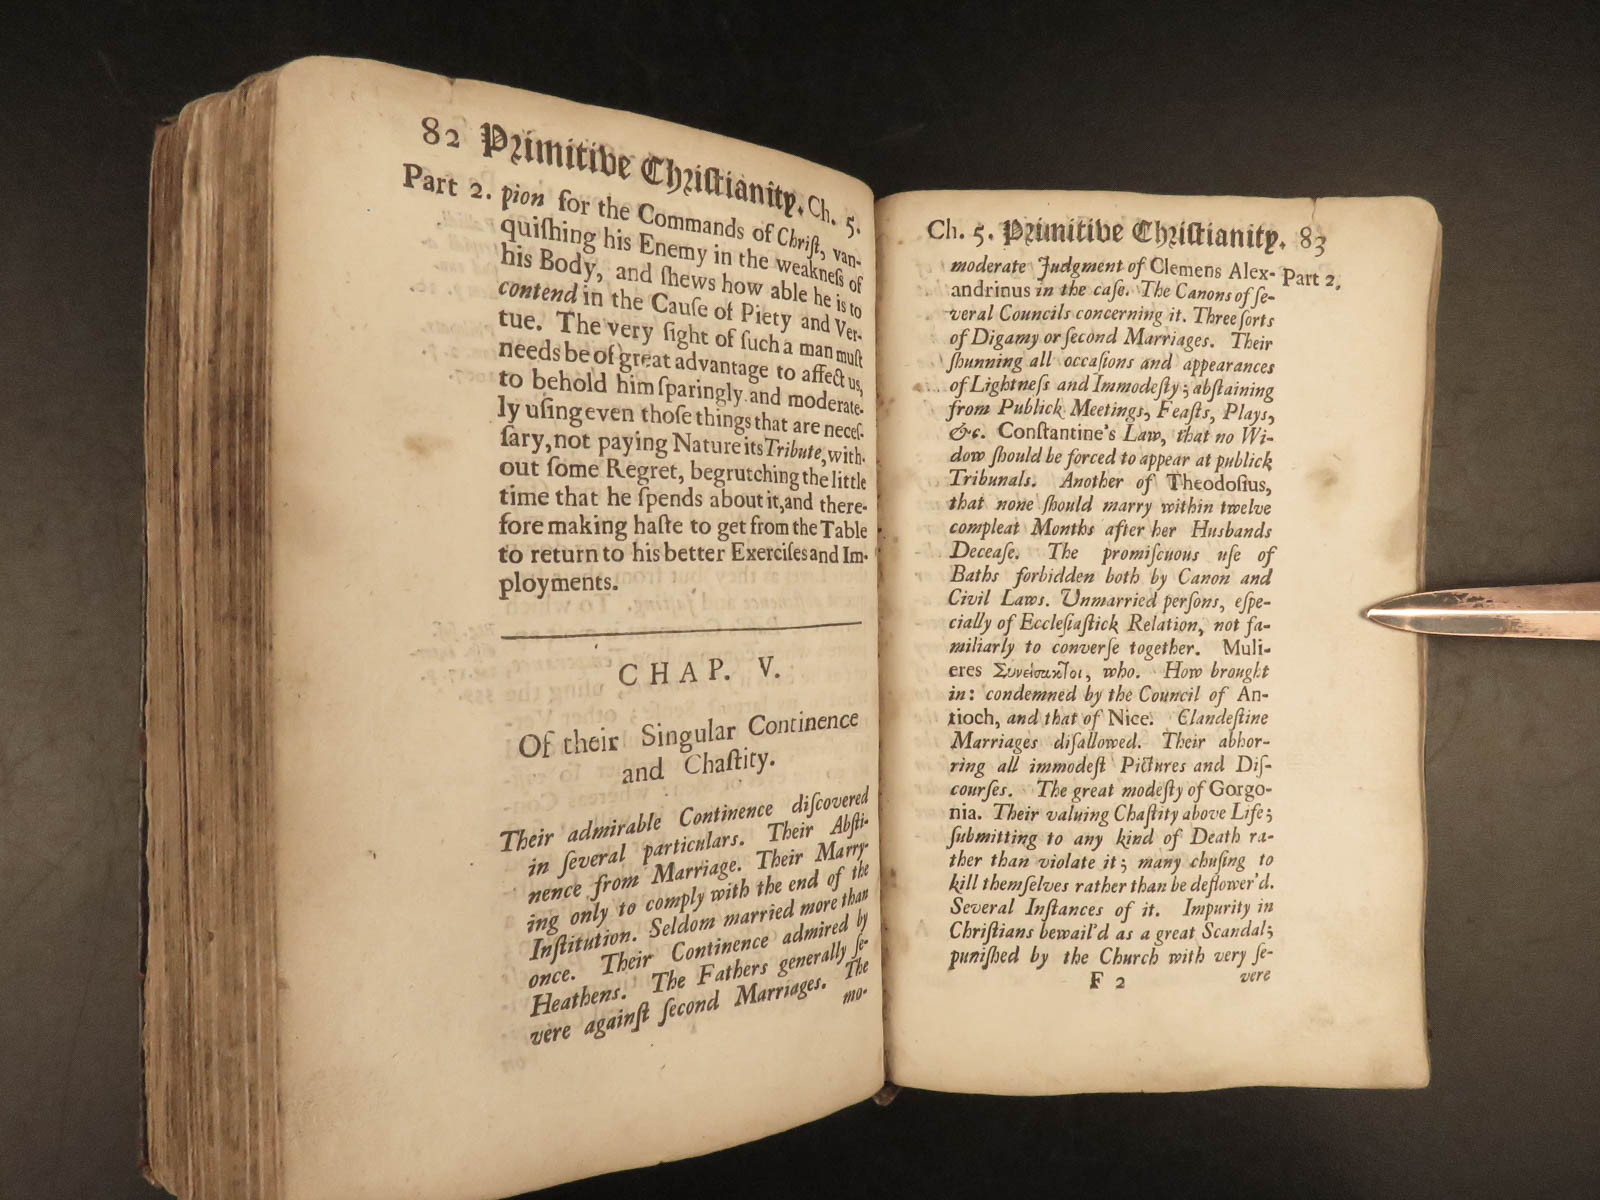 82 Primitive Christianity. Ch. 5.
Part 2. pion for the Commands of Chriſt, van-
quiſhing his Enemy in the weakneſs of
his Body, and ſhews how able he is to
contend in the Cauſe of Piety and Ver-
tue. The very ſight of ſuch a man muſt
needs be of great advantage to affect us,
to behold him ſparingly and moderate-
ly uſing even thoſe things that are neceſ-
ſary, not paying Nature its Tribute, with-
out ſome Regret, begrutching the little
time that he ſpends about it, and there-
fore making haſte to get from the Table
to return to his better Exerciſes and Im-
ployments.
CHAP. V.
Of their Singular Continence
and Chaſtity.
Their admirable Continence diſcovered
in ſeveral particulars. Their Abſti-
nence from Marriage. Their Marry-
ing only to comply with the end of the
Inſtitution. Seldom married more than
once. Their Continence admired by
Heathens. The Fathers generally ſe-
vere againſt ſecond Marriages. The
mo-
Ch. 5. Primitive Christianity. 83
moderate Judgment of Clemens Alex- Part 2.
andrinus in the caſe. The Canons of ſe-
veral Councils concerning it. Three ſorts
of Digamy or ſecond Marriages. Their
ſhunning all occaſions and appearances
of Lightneſs and Immodeſty; abſtaining
from Publick Meetings, Feaſts, Plays,
&c. Conſtantine's Law, that no Wi-
dow ſhould be forced to appear at publick
Tribunals. Another of Theodoſius,
that none ſhould marry within twelve
compleat Months after her Husbands
Deceaſe. The promiſcuous uſe of
Baths forbidden both by Canon and
Civil Laws. Unmarried perſons, eſpe-
cially of Eccleſiaſtick Relation, not fa-
miliarly to converſe together. Muli-
eres Συνείσακτοι, who. How brought
in: condemned by the Council of An-
tioch, and that of Nice. Clandeſtine
Marriages diſallowed. Their abhor-
ring all immodeſt Pictures and Diſ-
courſes. The great modeſty of Gorgo-
nia. Their valuing Chaſtity above Life;
ſubmitting to any kind of Death ra-
ther than violate it; many chuſing to
kill themſelves rather than be deflower'd.
Several Inſtances of it. Impurity in
Chriſtians bewail'd as a great Scandal;
puniſhed by the Church with very ſe-
F 2 vere